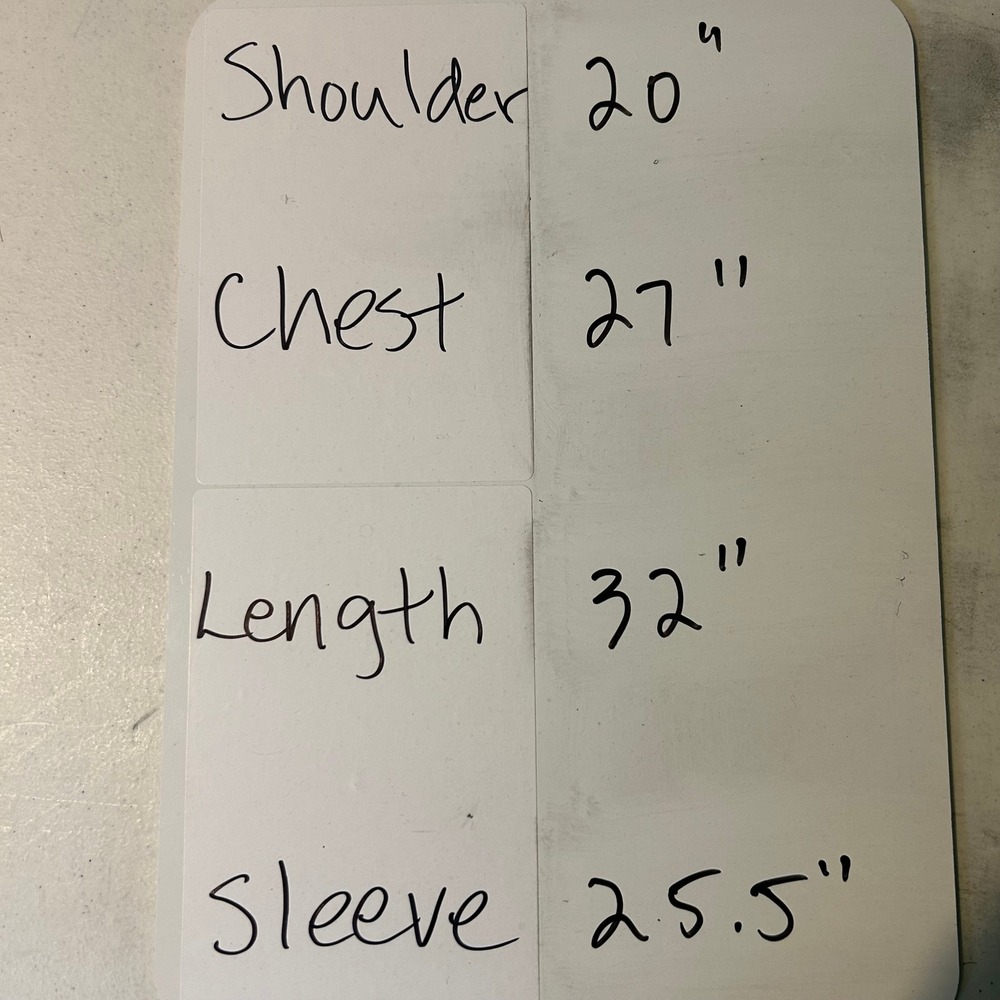 Shoulder 20"
Chest 27"
Length 32"
Sleeve 25.5"